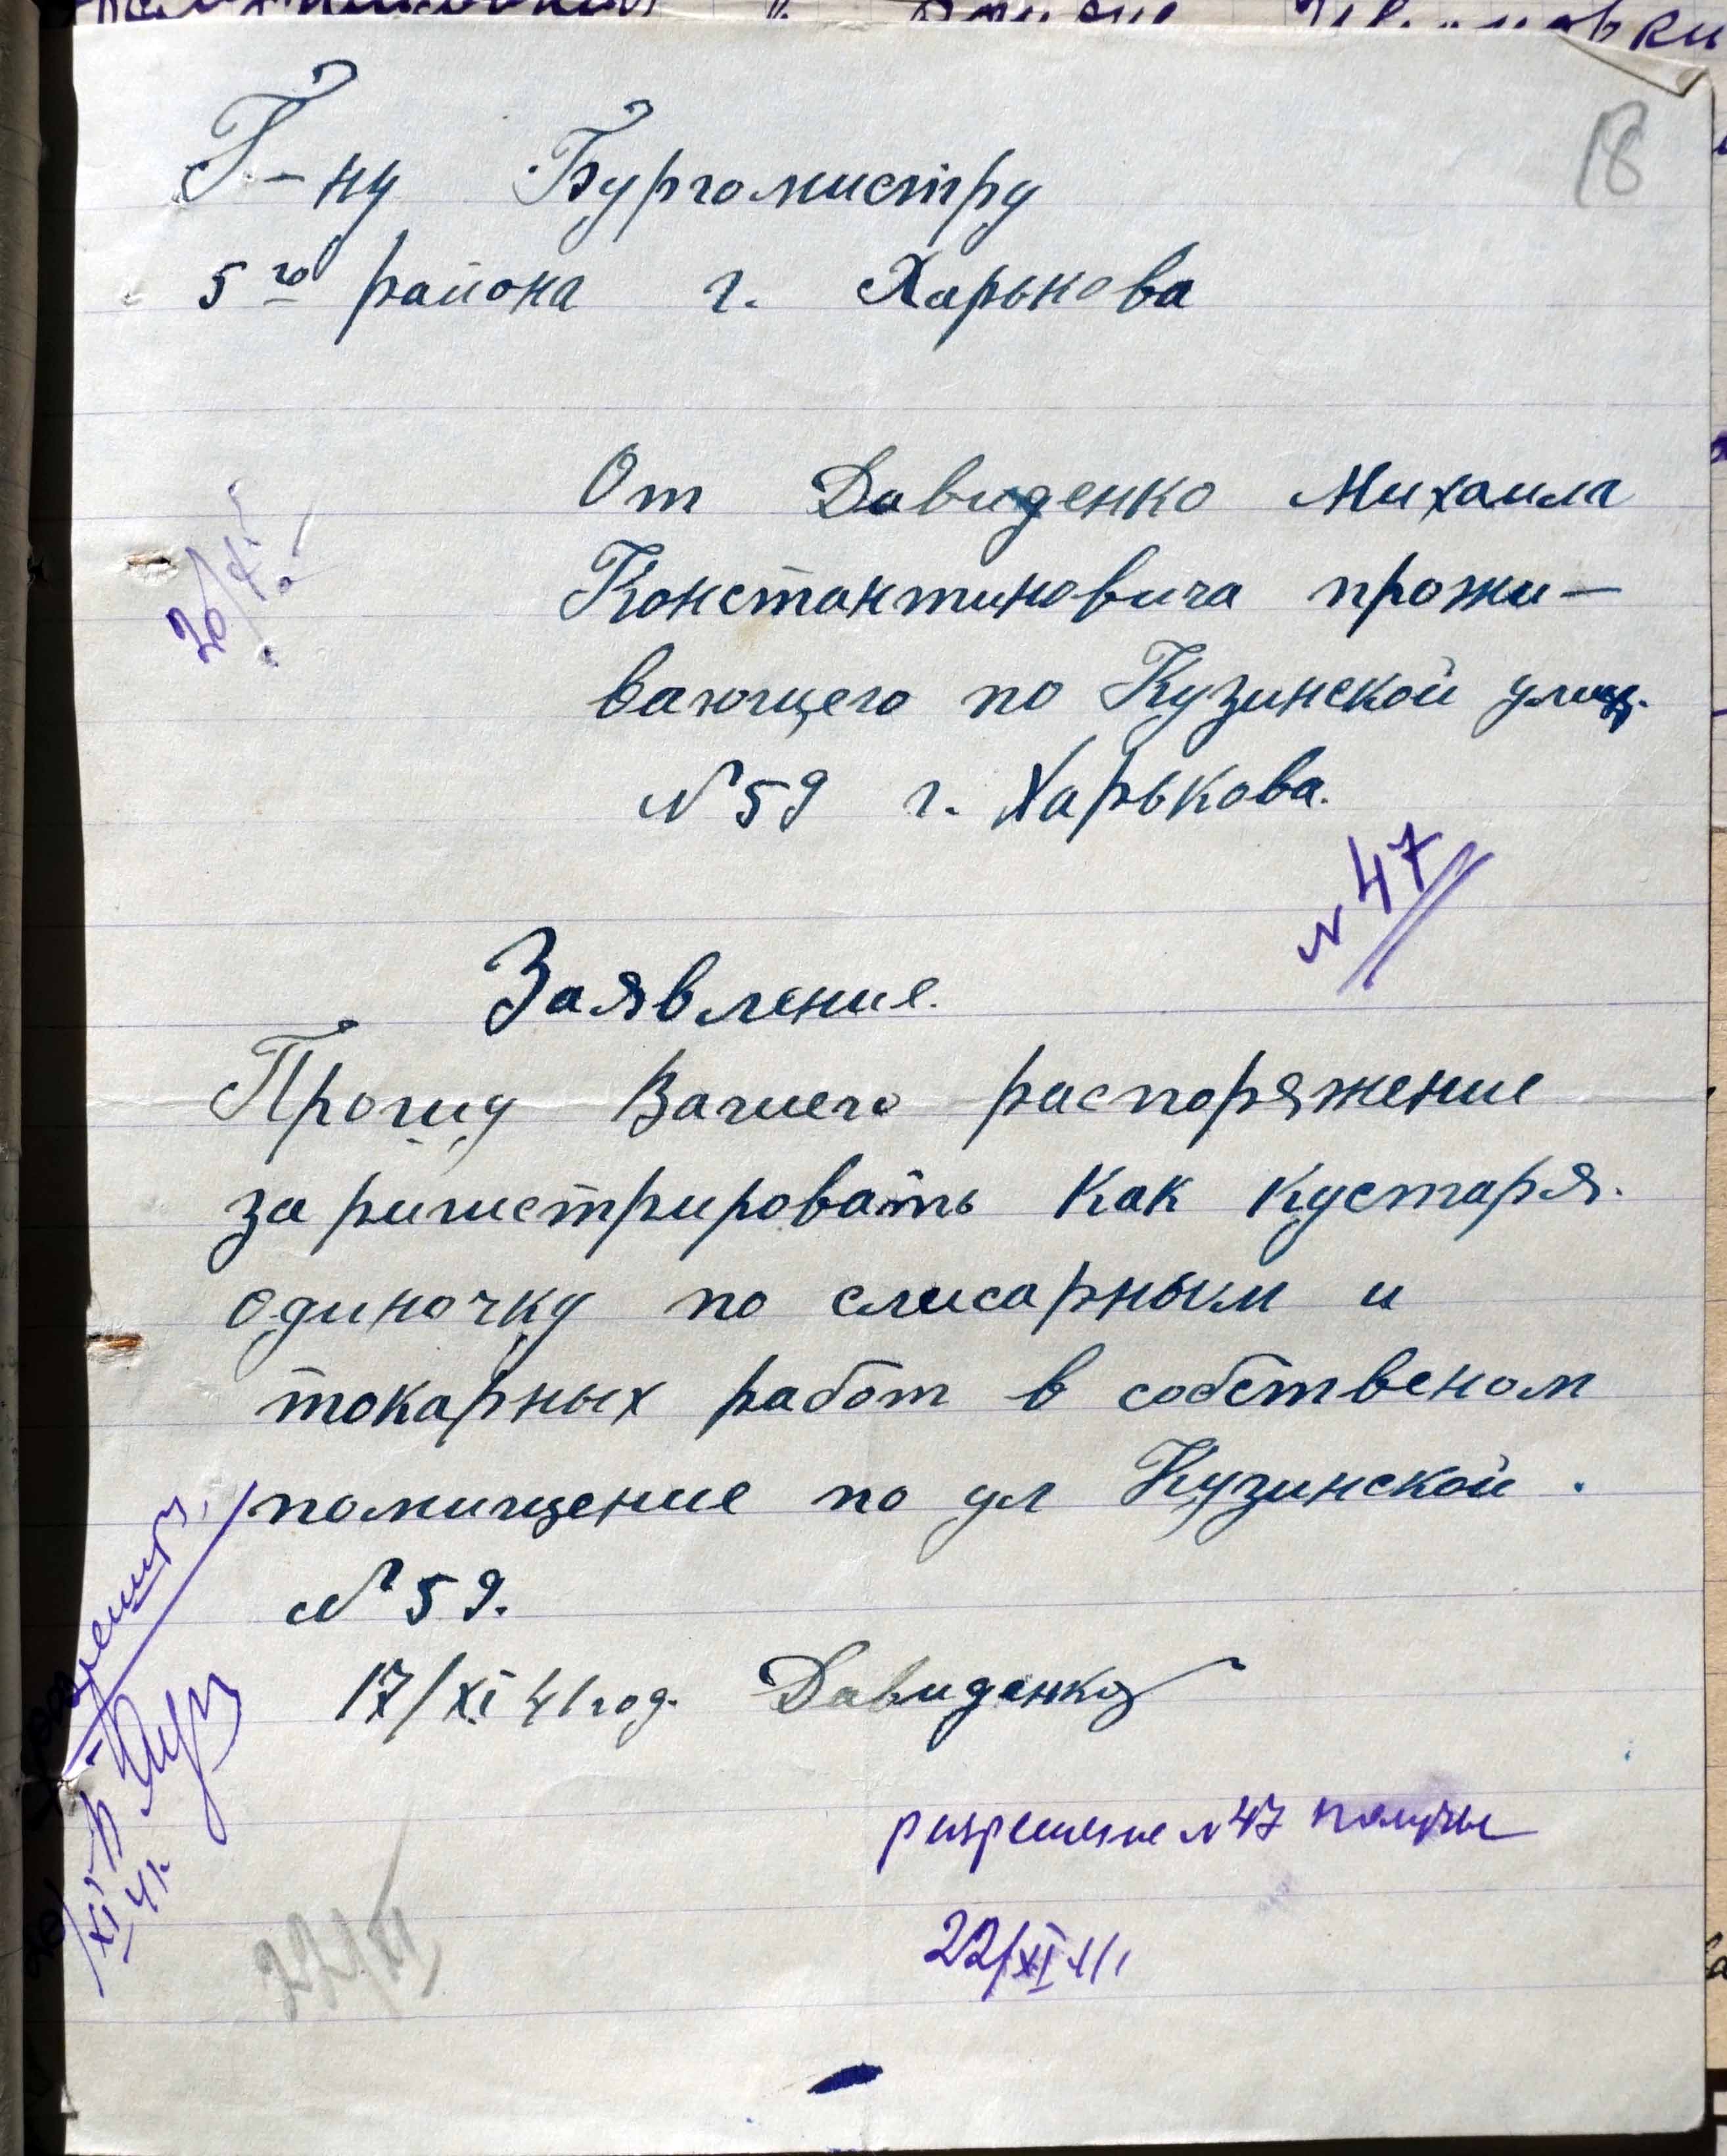 18
Г-ну Бургомистру
5го района г. Харькова
От Давиденко Михаила
Константиновича прожи-
вающего по Кузинской улиц.
N 59 г. Харькова.
20/XI
N 47
Заявление.
Прошу Вашего распоряжение
зариґистрировать как кустаря.
одиночку по слисарным и
токарных работ в собственом
помищение по ул Кузинской .
N 59.
17/XI 41 год. Давиденко
Разрешить
XI 41.
разрешение N 47 получил
22/XI 41
22/XI